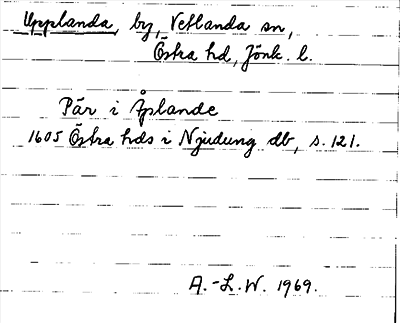 Upplanda, by, Vetlanda sn,
Östra hd, Jönk. l.
Pär i Åplande
1605 Östra hds i Njudung db, s. 121.
A.-L.W. 1969.